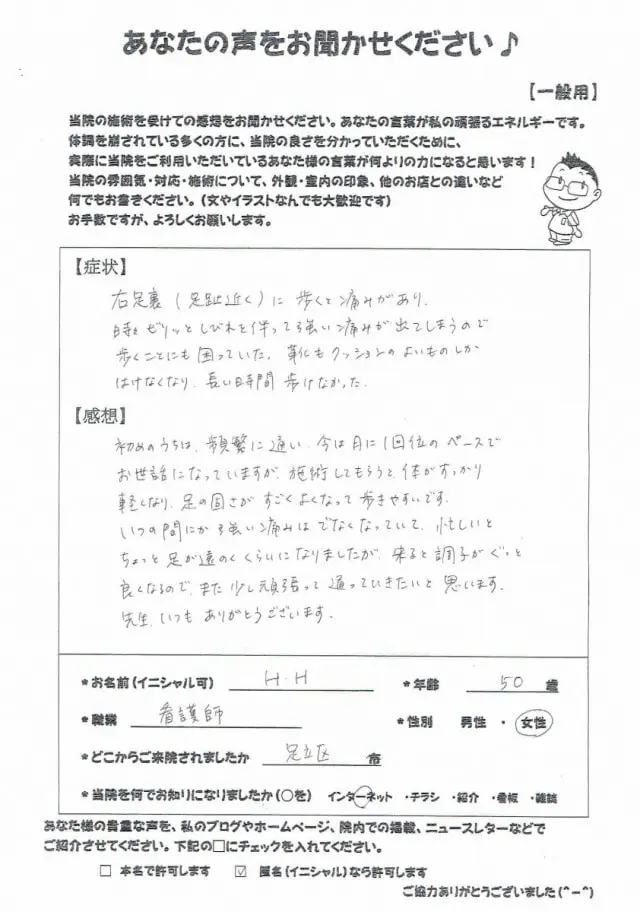 あなたの声をお聞かせください♪
【一般用】
当院の施術を受けての感想をお聞かせください。あなたの言葉が私の頑張るエネルギーです。
体調を崩されている多くの方に、当院の良さを分かっていただくために、
実際に当院をご利用いただいているあなた様の言葉が何よりの力になると思います！
当院の雰囲気・対応・施術について、外観・室内の印象、他のお店との違いなど
何でもお書きください。（文やイラストなんでも大歓迎です）
お手数ですが、よろしくお願いします。
【症状】
右足裏（足趾近く）に歩くと痛みがあり、
時々ビリッとしびれを伴って強い痛みが出てしまうので
歩くことにも困っていた。靴もクッションのよいものしか
はけなくなり、長い時間歩けなかった。
【感想】
初めのうちは、頻繁に通い、今は月に1回位のペースで
お世話になっていますが、施術してもらうと、体がすっかり
軽くなり、足の固さがすごくよくなって歩きやすいです。
いつの間にか強い痛みはでなくなっていて、忙しいと
ちょっと足が遠のくくらいになりましたが、来ると調子がぐっと
良くなるので、また少し頑張って通っていきたいと思います。
先生、いつもありがとうございます。
*お名前（イニシャル可） H.H *年齢 50 歳
*職業 看護師 *性別 男性 ・ 女性
*どこからご来院されましたか 足立区 市
*当院を何でお知りになりましたか（○を） インターネット ・チラシ ・紹介 ・看板 ・雑誌
あなた様の貴重な声を、私のブログやホームページ、院内での掲載、ニュースレターなどで
ご紹介させてください。下記の□にチェックを入れてください。
□ 本名で許可します ☑ 匿名（イニシャル）なら許可します
ご協力ありがとうございました（^－^）